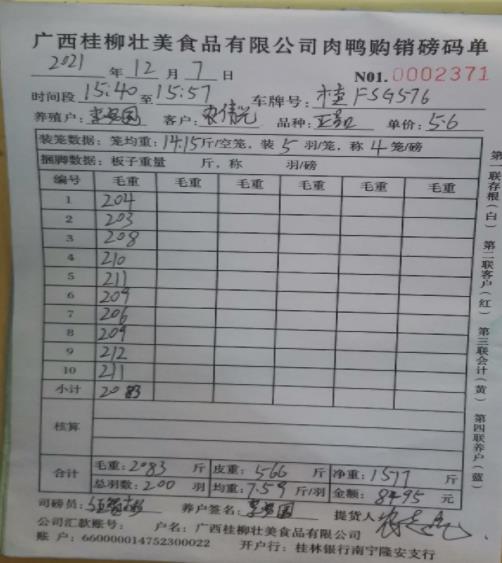 广西桂柳壮美食品有限公司肉鸭购销磅码单
2021 年 12 月 7 日 N01.0002371
时间段 15:40 至 15:57 车牌号: 桂FSG576
养殖户: 客户: 品种: 单价: 5.6
装笼数据: 笼均重: 14.15斤/空笼, 装 5 羽/笼, 称 4 笼/磅
捆脚数据: 板子重量 斤, 称 羽/磅
编号 毛重 毛重 毛重 毛重 毛重 毛重
1 204
2 203
3 208
4 210
5 211
6 209
7 206
8 209
9 212
10 211
小计 2083
核算
合计 毛重: 2083 斤 皮重: 566 斤 净重: 1517 斤
总羽数: 200 羽 均重: 7.59 斤/羽 金额: 8495 元
司磅员: 养户签名: 提货人:
公司汇款账号: 户名: 广西桂柳壮美食品有限公司
账 户: 660000014752300022 开户行: 桂林银行南宁隆安支行
第一联存根(白) 第二联客户(红) 第三联会计(黄) 第四联养户(蓝)